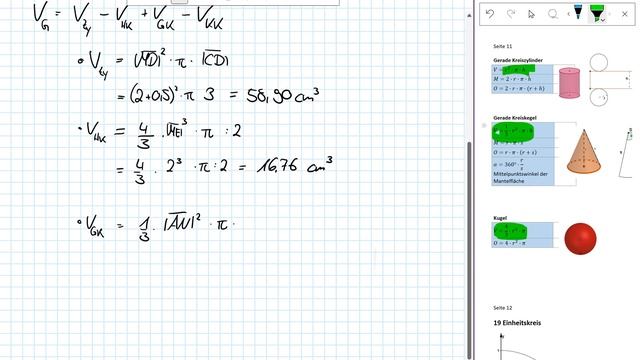 V_G = V_Zy − V_HK + V_GK − V_KK
• V_Zy = |MD|² · π · |CD|
= (2+0,5)² · π · 3 = 58,90 cm³
• V_HK = 4/3 · |ME|³ · π : 2
= 4/3 · 2³ · π : 2 = 16,76 cm³
• V_GK = 1/3 · |AN|² · π ·
Seite 11
Gerade Kreiszylinder
M = 2 · r · π · h
O = 2 · r · π · (r + h)
Gerade Kreiskegel
O = r · π · (r + s)
α = 360° · r/s
Mittelpunktswinkel der
Mantelfläche
Kugel
V = 4/3 · r³ · π
O = 4 · r² · π
Seite 12
19 Einheitskreis